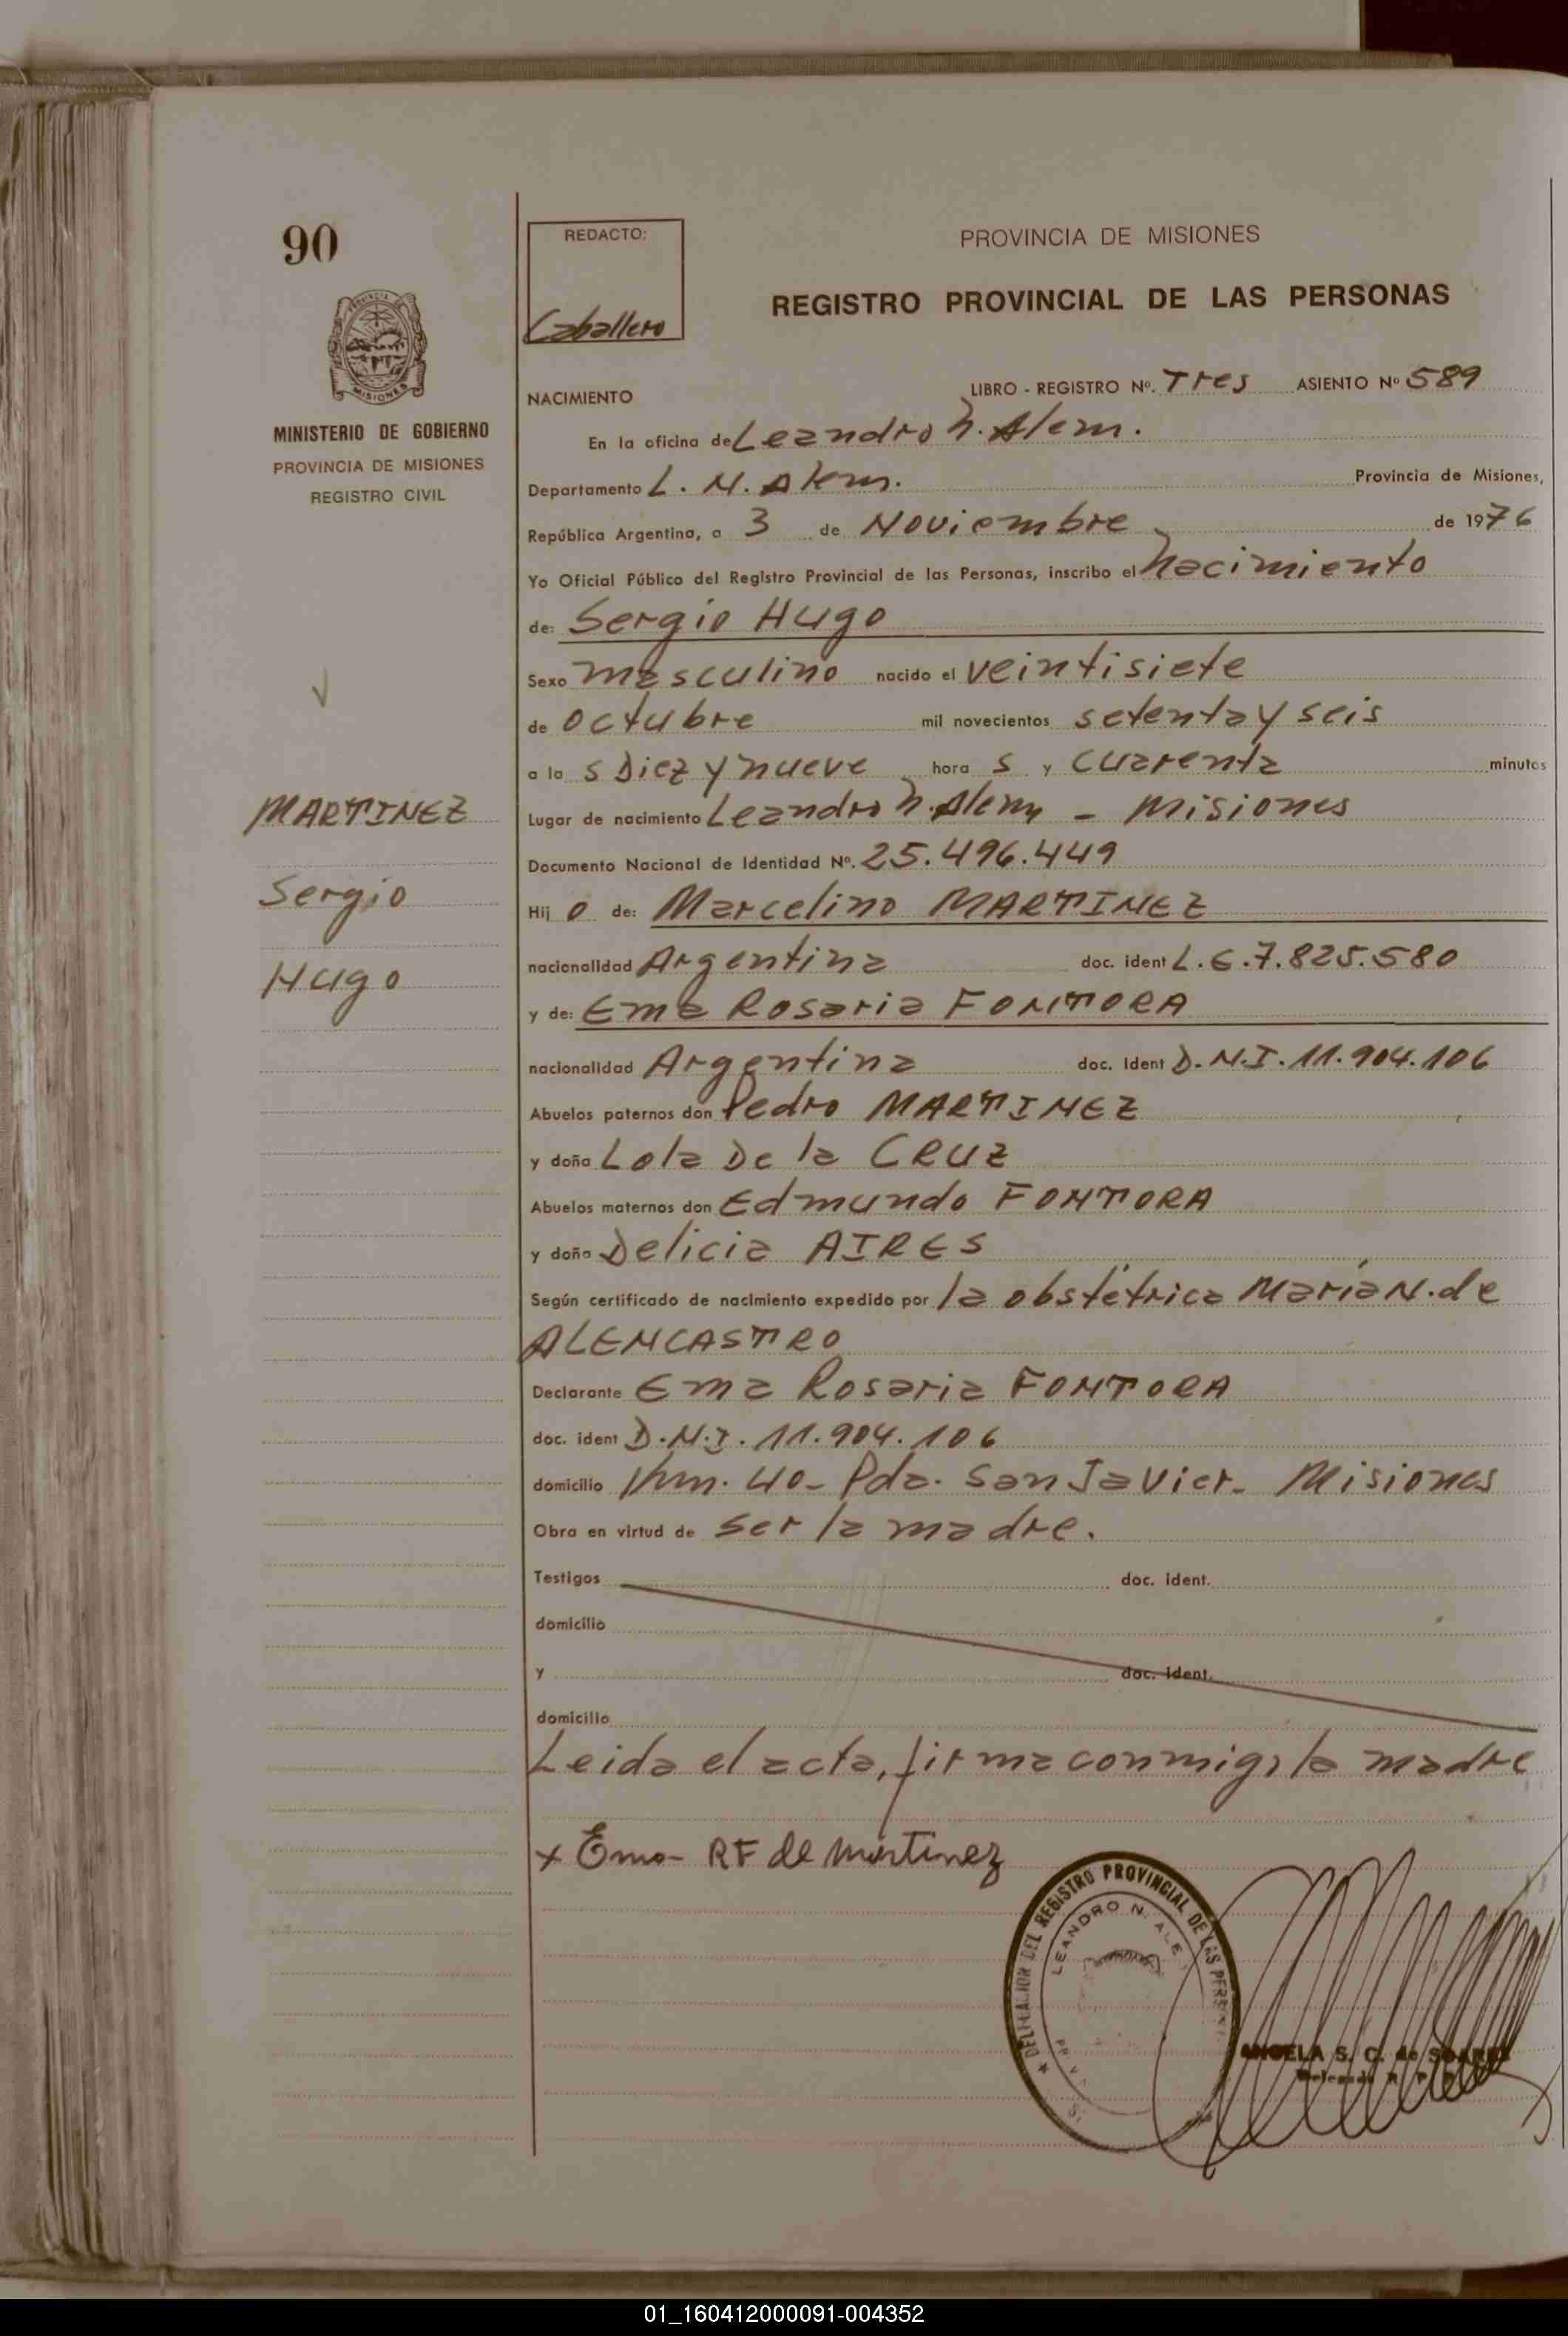 90
MINISTERIO DE GOBIERNO
PROVINCIA DE MISIONES
REGISTRO CIVIL
MARTINEZ
Sergio
Hugo
REDACTO:
Caballero
PROVINCIA DE MISIONES
REGISTRO PROVINCIAL DE LAS PERSONAS
NACIMIENTO LIBRO - REGISTRO Nº. Tres ASIENTO Nº 589
En la oficina de Leandro N. Alem.
Departamento L. N. Alem. Provincia de Misiones,
República Argentina, a 3 de Noviembre de 1976
Yo Oficial Público del Registro Provincial de las Personas, inscribo el Nacimiento
de: Sergio Hugo
Sexo masculino nacido el veintisiete
de octubre mil novecientos setenta y seis
a la s Diez y nueve hora s y cuarenta minutos
Lugar de nacimiento Leandro N. Alem - Misiones
Documento Nacional de Identidad Nº. 25.496.449
Hij o de: Marcelino MARTINEZ
nacionalidad Argentina doc. ident L.E.7.825.580
y de: Ema Rosaria FONTORA
nacionalidad Argentina doc. ident D.N.I. 11.904.106
Abuelos paternos don Pedro MARTINEZ
y doña Lola De la CRUZ
Abuelos maternos don Edmundo FONTORA
y doña Delicia AIRES
Según certificado de nacimiento expedido por la obstétrica María N. de
ALENCASTRO
Declarante Ema Rosaria FONTORA
doc. ident D.N.I. 11.904.106
domicilio Km. 40- Pda. San Javier- Misiones
Obra en virtud de ser la madre.
Testigos doc. ident.
domicilio
y doc. ident.
domicilio
Leida el acta, firma conmigo la madre
x Ema- RF de Martinez
DELEGACION DEL REGISTRO PROVINCIAL DE LAS
LEANDRO N. ALE
ANGELA S. C. de SOARES
01_160412000091-004352